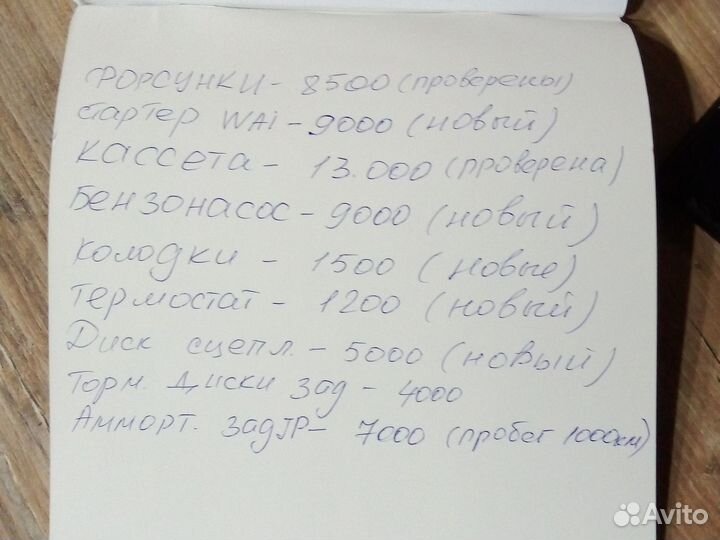 Форсунки - 8500 (проверены)
Стартер WAi - 9000 (новый)
Кассета - 13.000 (проверена)
Бензонасос - 9000 (новый)
Колодки - 1500 (новые)
Термостат - 1200 (новый)
Диск сцепл. - 5000 (новый)
Торм. Диски зад - 4000
Амморт. зад JP - 7000 (пробег 1000км)
Avito